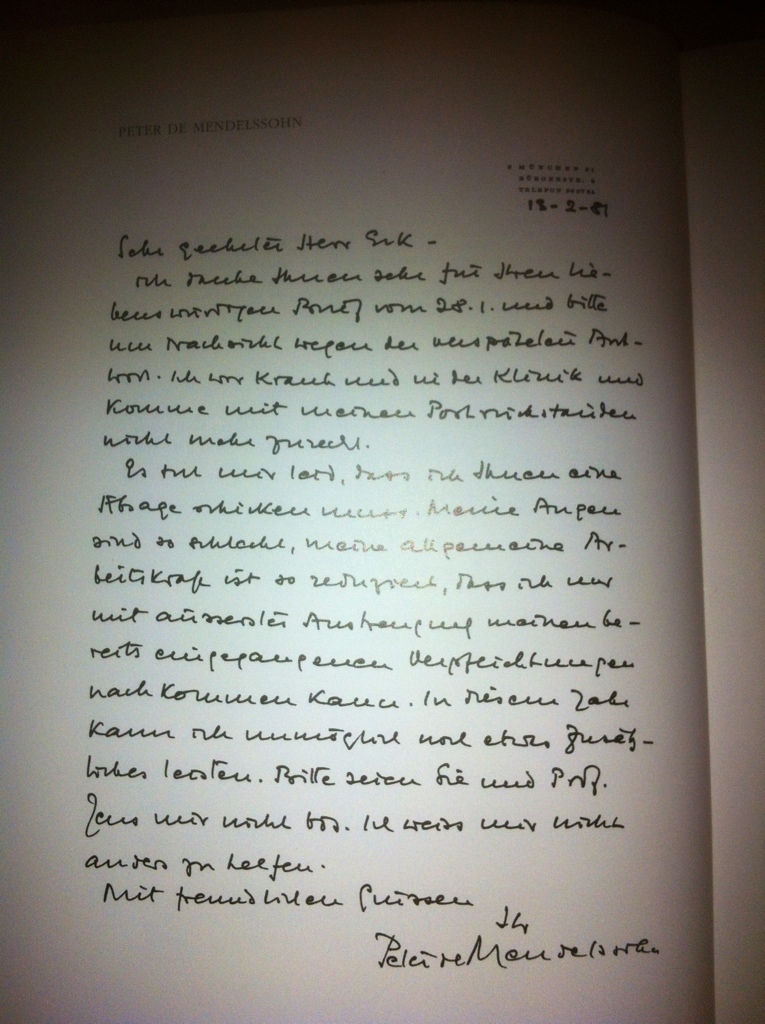 PETER DE MENDELSSOHN
8 MÜNCHEN 81
TELEFON
18-2-81
Sehr geehrter Herr Erk -
ich danke Ihnen sehr für Ihren lie-
benswürdigen Brief vom 28.1. und bitte
um Nachsicht wegen der verspäteten Ant-
wort. Ich war krank und in der Klinik und
komme mit meinen Postrückständen
nicht mehr zurecht.
Es tut mir leid, dass ich Ihnen eine
Absage schicken muss. Meine Augen
sind so schlecht, meine allgemeine Ar-
beitskraft ist so reduziert, dass ich nur
mit äusserster Anstrengung meinen be-
reits eingegangenen Verpflichtungen
nachkommen kann. In diesem Jahr
kann ich unmöglich noch etwas Zusätz-
liches leisten. Bitte seien Sie und Prof.
Jens mir nicht bös. Ich weiss mir nicht
anders zu helfen.
Mit freundlichen Grüssen
Ihr
Peter de Mendelssohn